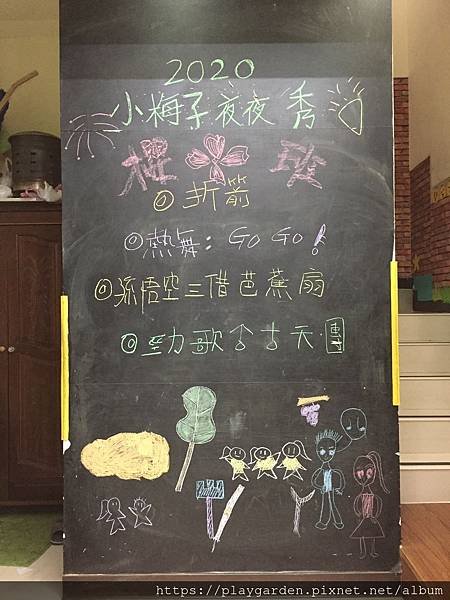 2020
小梅子夜夜秀
◎折箭
◎熱舞：GO GO！
◎孫悟空三借芭蕉扇
◎勁歌合古天團
https://playgarden.pixnet.net/album